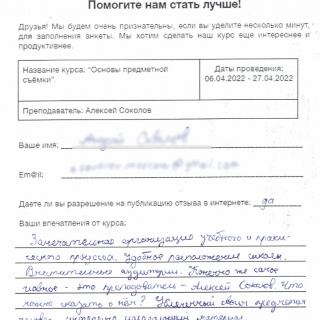 Помогите нам стать лучше!
Друзья! Мы будем очень признательны, если вы уделите несколько минут,
для заполнения анкеты. Мы хотим сделать наш курс еще интереснее и
продуктивнее.
Название курса: "Основы предметной
съёмки".
Даты проведения:
06.04.2022 - 27.04.2022
Преподаватель: Алексей Соколов
Ваше имя:
Em@il:
Даете ли вы разрешение на публикацию отзыва в интернете: да
Ваши впечатления от курса:
Замечательная организация учебного и практи-
ческого процесса. Удобное расположение школы.
аудитории. Конечно же самое
главное - это преподаватель - Алексей Соколов. Что
можно сказать о нём? свои предметом